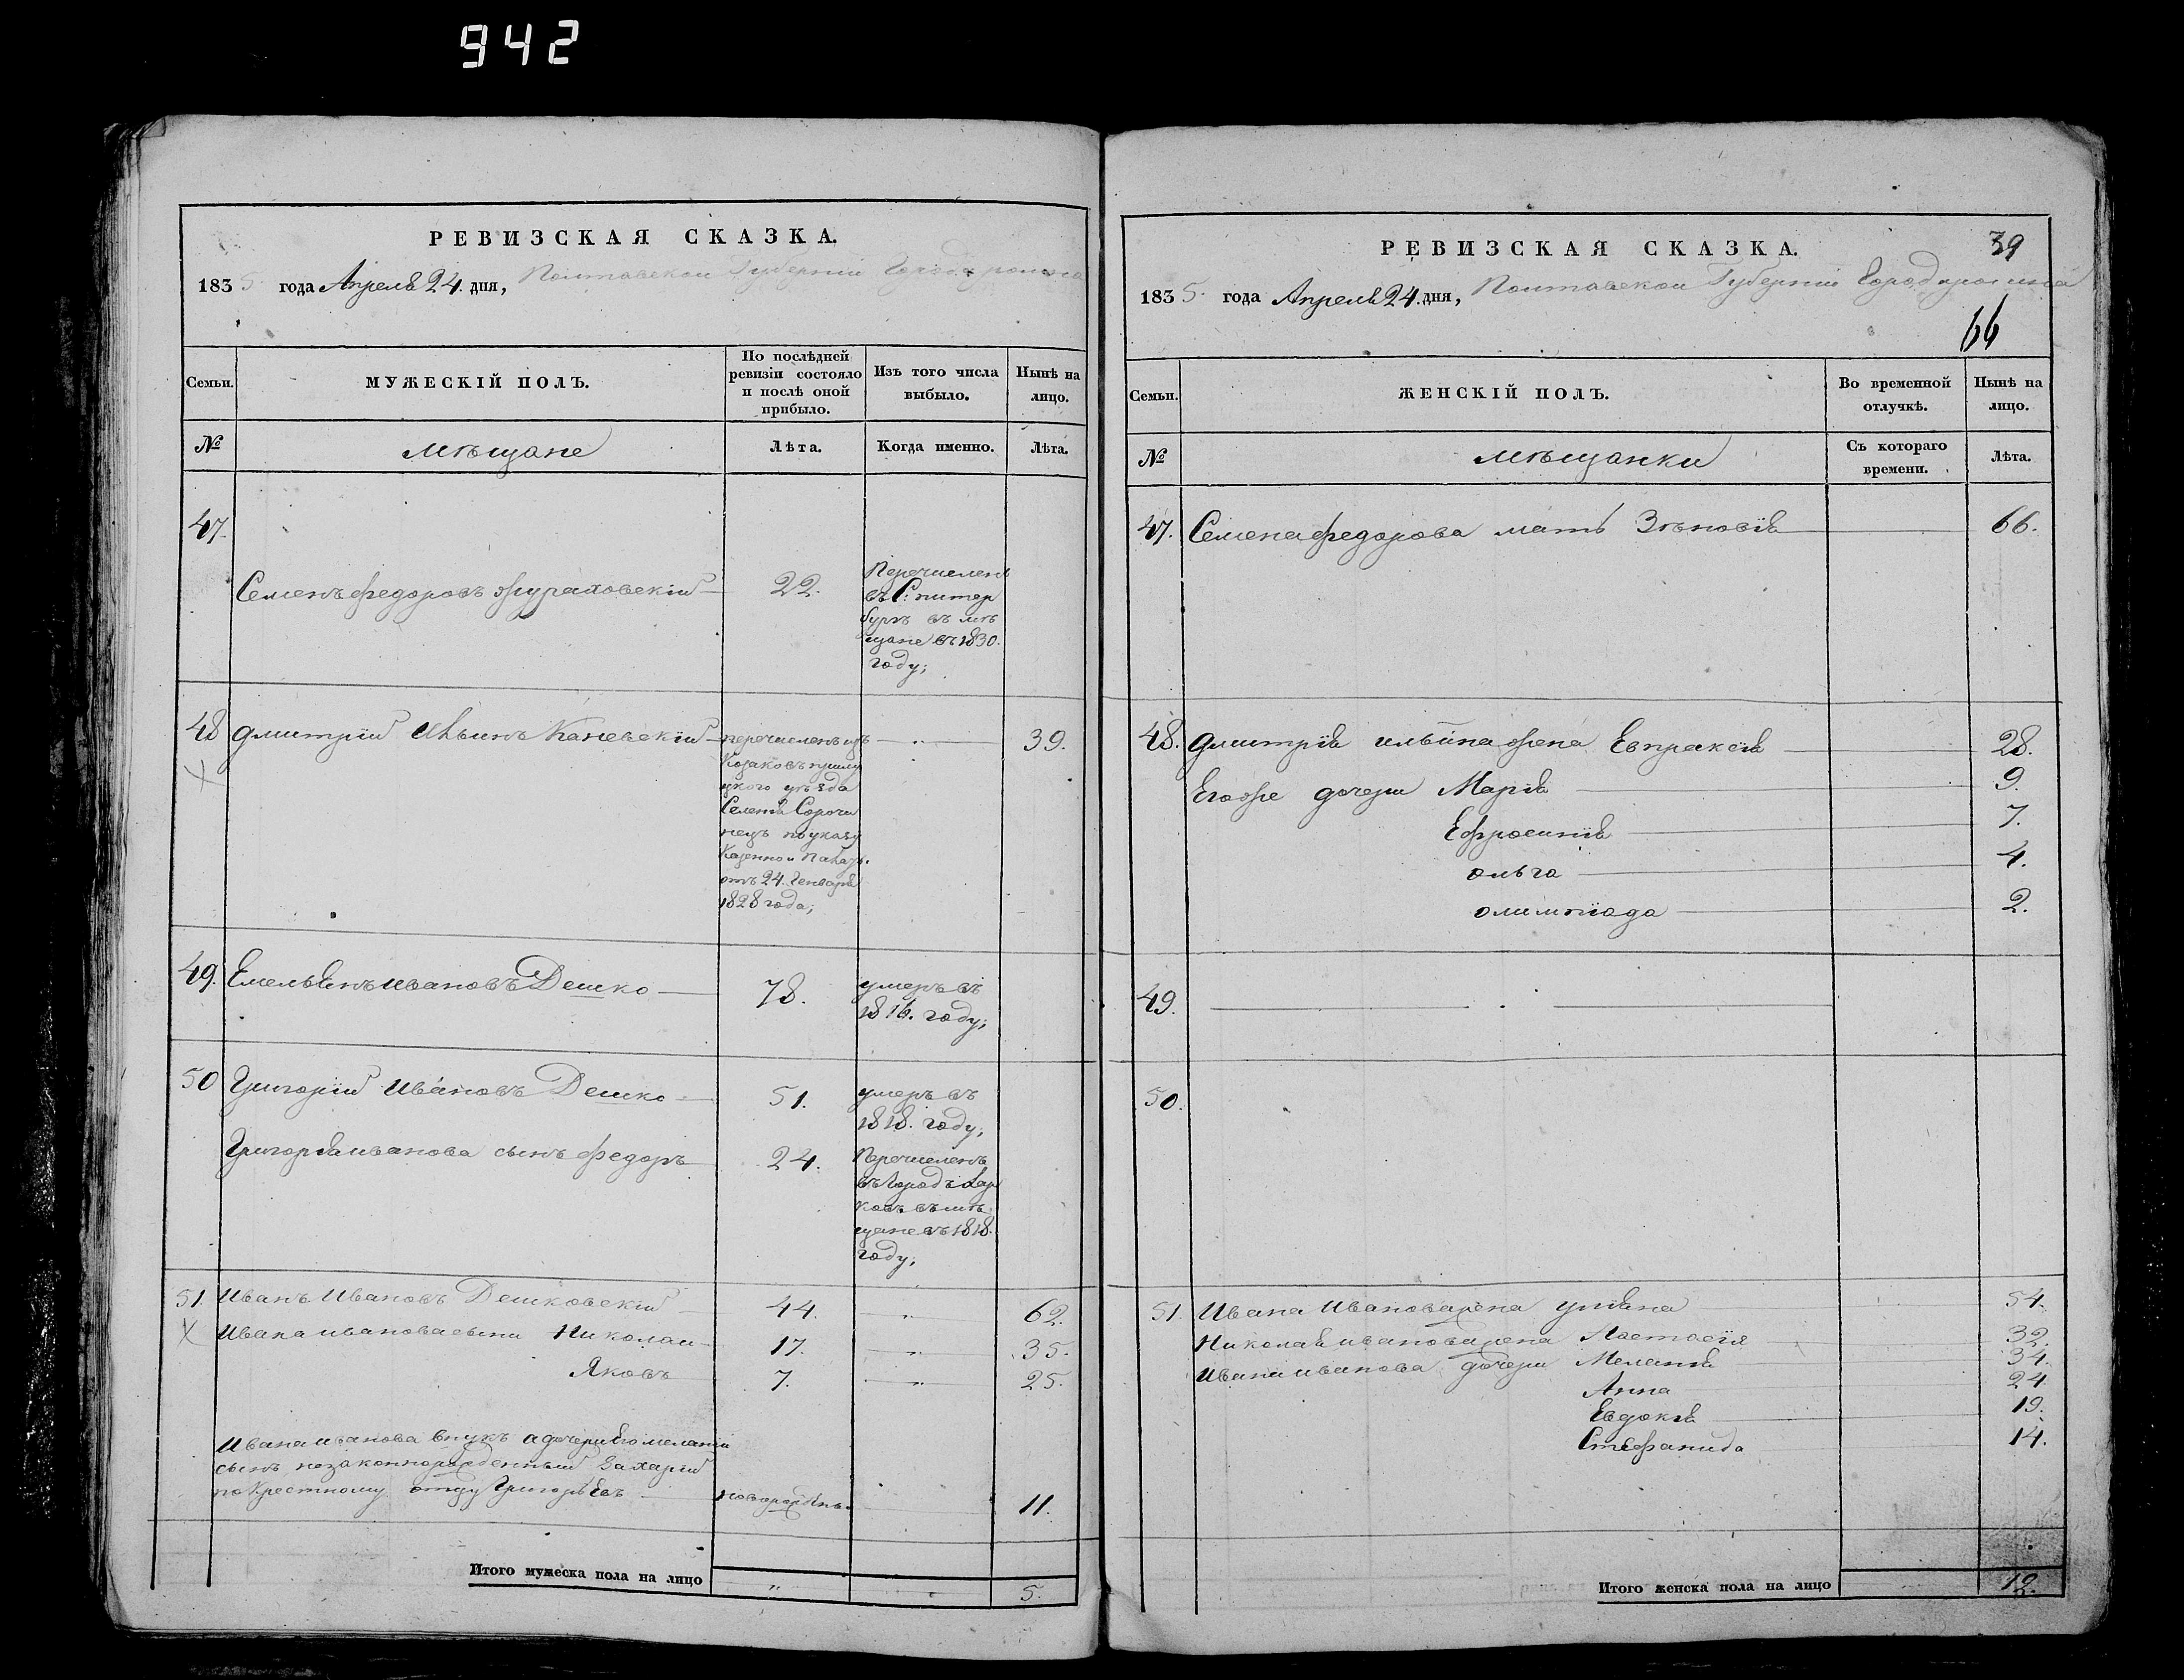 942
РЕВИЗСКАЯ СКАЗКА.
1835 года Апреля 24. дня, Полтавской Губернии Города ромна
Семьи. МУЖЕСКІЙ ПОЛЪ. По послѣдней ревизіи состояло и послѣ оной прибыло. Изъ того числа выбыло. Нынѣ на лицо.
№ мѣщане Лѣта. Когда именно. Лѣта.
47.
Семенъ федоровъ 22. Перечисленъ
въ С: питер
бургъ въ мѣ
щане въ 1830.
году;
48 дмитрій Ильинъ Каневскій перечисленъ изъ " 39.
Козаковъ прилу
цкого уѣзда
Селенія Сорочи
нецъ по указу
Казенной Палаты.
отъ 24. Генваря
1828 года;
49. Емельянъ ивановъ Дешко 78. умеръ въ
1816. году;
50 Григорій Ивановъ Дешко 51. умеръ въ
1818. году;
Григорія иванова сынъ федоръ 24. Перечисленъ
въ Городъ Хар
ковъ въ мѣ
щане въ 1818.
году;
51. Иванъ Ивановъ Дешковскій 44. " 62.
Ивана иванова сыни Николай 17. " 35.
Яковъ 7. " 25.
Ивана иванова внукъ а дочери Его меланіи
сынъ незаконнорожденный Захарій
по Крестному отцу Григорьевъ новорожденъ. 11.
Итого мужеска пола на лицо " 5.
РЕВИЗСКАЯ СКАЗКА. 39
1835. года Апреля 24. дня, Полтавской Губерніи Города ромна
66
Семьи. ЖЕНСКІЙ ПОЛЪ. Во временной отлучкѣ. Нынѣ на лицо.
№ мѣщанки Съ котораго времени. Лѣта.
47. Семена федорова мать Зѣновія 66.
48. дмитрія ильина жена Евпраксія 28.
Егоже дочери Марія 9.
Ефросинія 7.
ольга 4.
олимпіада 2.
49.
50.
51. Ивана Иванова жена уліяна 54.
Николая иванова жена Настасія 32.
Ивана иванова дочери Меланія 34.
Анна 24
Евдокія 19.
Стефанида 14.
Итого женска пола на лицо 12.